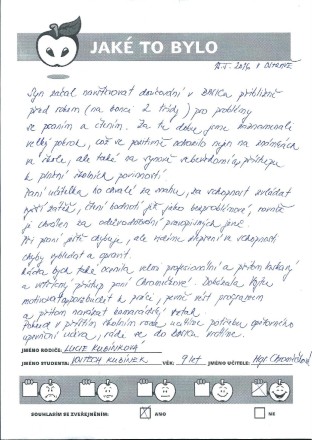 JAKÉ TO BYLO
v Ostravě
Syn začal navštěvovat doučování v přibližně
před rokem (na konci 2. třídy) pro problémy
se psaním a čtením. Za tu dobu jsme zaznamenali
velký pokrok, což se pozitivně odrazilo nejen na známkách
ve škole, ale také na synově sebevědomí a přístupu
k plnění školních povinností.
Paní učitelka ho chválí za snahu, za schopnost zvládat
větší zátěž, čtení hodnotí již jako bezproblémové, rovněž
je chválen za odůvodňování pravopisných jevů.
Při psaní ještě chybuje, ale vidíme zlepšení ve schopnosti
chyby vyhledat a opravit.
Ráda bych také ocenila velmi profesionální a přitom laskavý
a vstřícný přístup paní Chromíkové! Dokázala Vojtu
motivovat a povzbudit k práci, pevně vést programem
a přitom navázat kamarádský vztah.
Pokud v příštím školním roce ucítíme potřebu opětovného
upevnění učiva, ráda se do vrátíme.
JMÉNO RODIČE: LUCIE KUBÍNKOVÁ
JMÉNO STUDENTA: VOJTĚCH KUBÍNEK VĚK: 9 let JMÉNO UČITELE: Mgr. Chromíková
SOUHLASÍM SE ZVEŘEJNĚNÍM: ANO NE